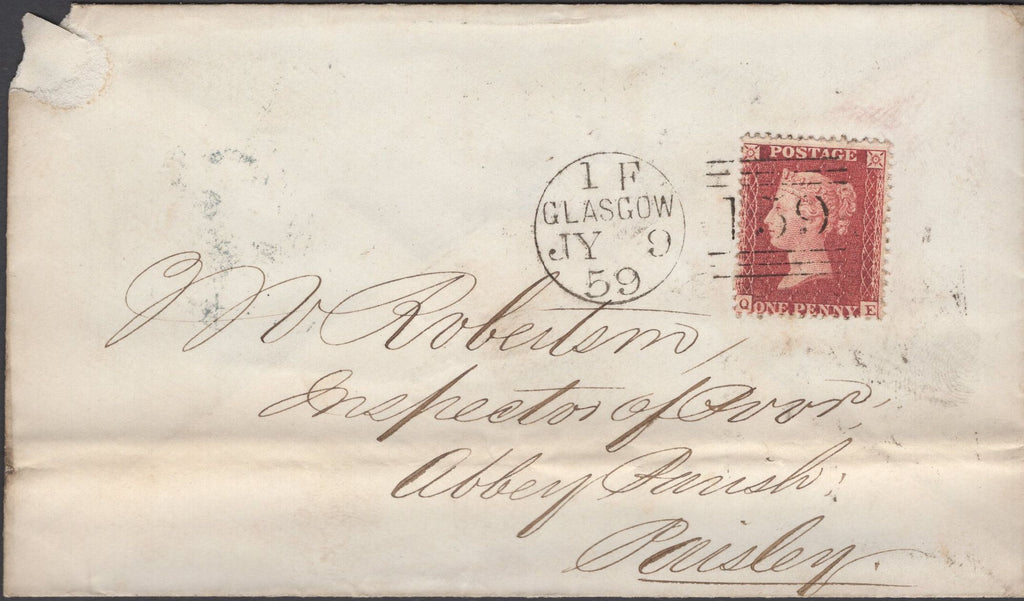 1 F
GLASGOW
JY 9
59
POSTAGE
159
Q ONE PENNY E
Robertson,
Inspector of Poor,
Abbey Parish,
Paisley.